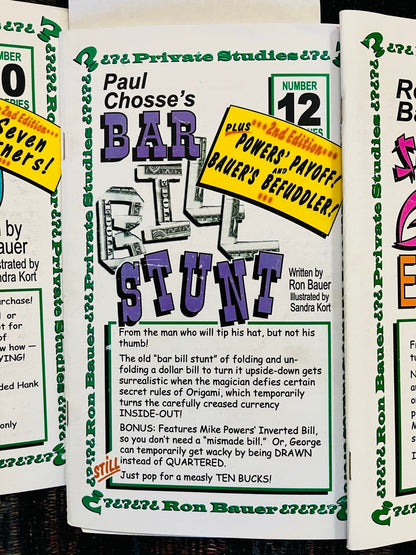 ¿?¿? Private Studies ¿?¿?
Paul
Chosse's
NUMBER
12
BAR
BILL
STUNT
PLUS ••• 2nd Edition •••
POWERS' PAYOFF!
AND
BAUER'S BEFUDDLER!
•••
Written by
Ron Bauer
Illustrated by
Sandra Kort
From the man who will tip his hat, but not his
thumb!
The old "bar bill stunt" of folding and un-
folding a dollar bill to turn it upside-down gets
surrealistic when the magician defies certain
secret rules of Origami, which temporarily
turns the carefully creased currency
INSIDE-OUT!
BONUS: Features Mike Powers' Inverted Bill,
so you don't need a "mismade bill." Or, George
can temporarily get wacky by being DRAWN
instead of QUARTERED.
STILL
Just pop for a measly TEN BUCKS!
Ron Bauer
Private Studies
Ron Bauer
Private Studies
Ron Bauer
NUMBER
0
SERIES
2nd Edition •••
Seven
ners!
n by
auer
strated by
dra Kort
urchase!
or
ot for
of
w how —
YING!
ded Hank
only
Ron Bauer Private Studies